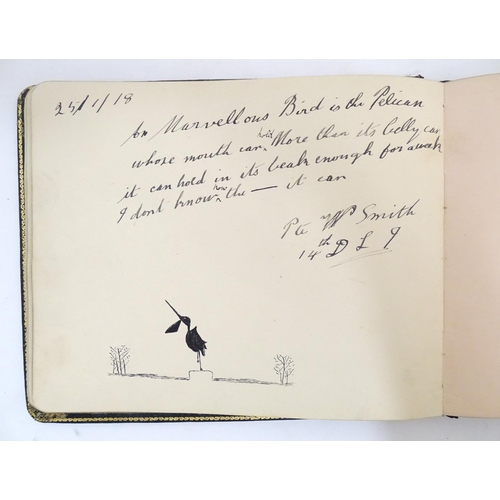 25/1/18
A Marvellous Bird is the Pelican
whose mouth can hold More than its belly can
it can hold in its beak enough for a week
I dont know how the — it can
Pte W Smith
14th D L I